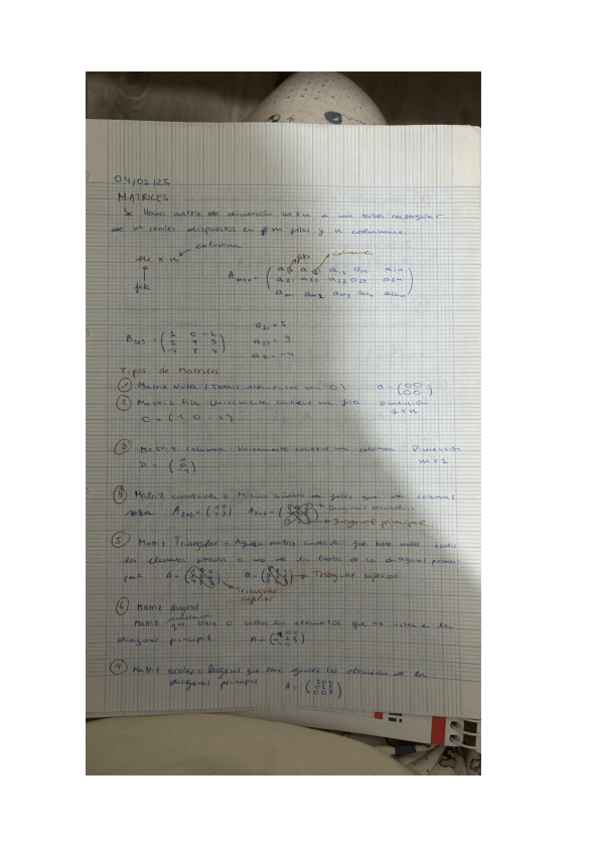 04/02/25
MATRICES
Se llama matriz de dimensión m x n a una tabla rectangular
de nº reales dispuestos en m filas y n columnas
columna
m x n
fila
fila columna
A m x n =
a21 a22 a23 a24 a2n
am1 am2 am3 am4 amn
a21 = 5
B3x3 =
a23 = 3
= -4
Tipos de Matrices
1 Matriz Nula (Todos elementos son 0) 0 0
0 0
2 Matriz fila Únicamente contiene una fila Dimensión
1 x n
C = (1 0
3 Matriz columna Únicamente contiene una columna Dimensión
D = m x 1
4 Matriz cuadrada = Mismo número de filas que de columnas
A2x2 = Diagonal secundaria
Diagonal principal
5 Matriz Triangular = Aquella matriz cuadrada que tiene nulos todos
los elementos situados a uno de los lados de la diagonal princi-
pal A = B = Triangular superior
Triangular
6 Matriz diagonal
Matriz cuadrada que tiene 0 todos los elementos que no están en la
diagonal principal A =
7 Matriz escalar = Diagonal que tiene iguales los elementos de la
diagonal principal A =